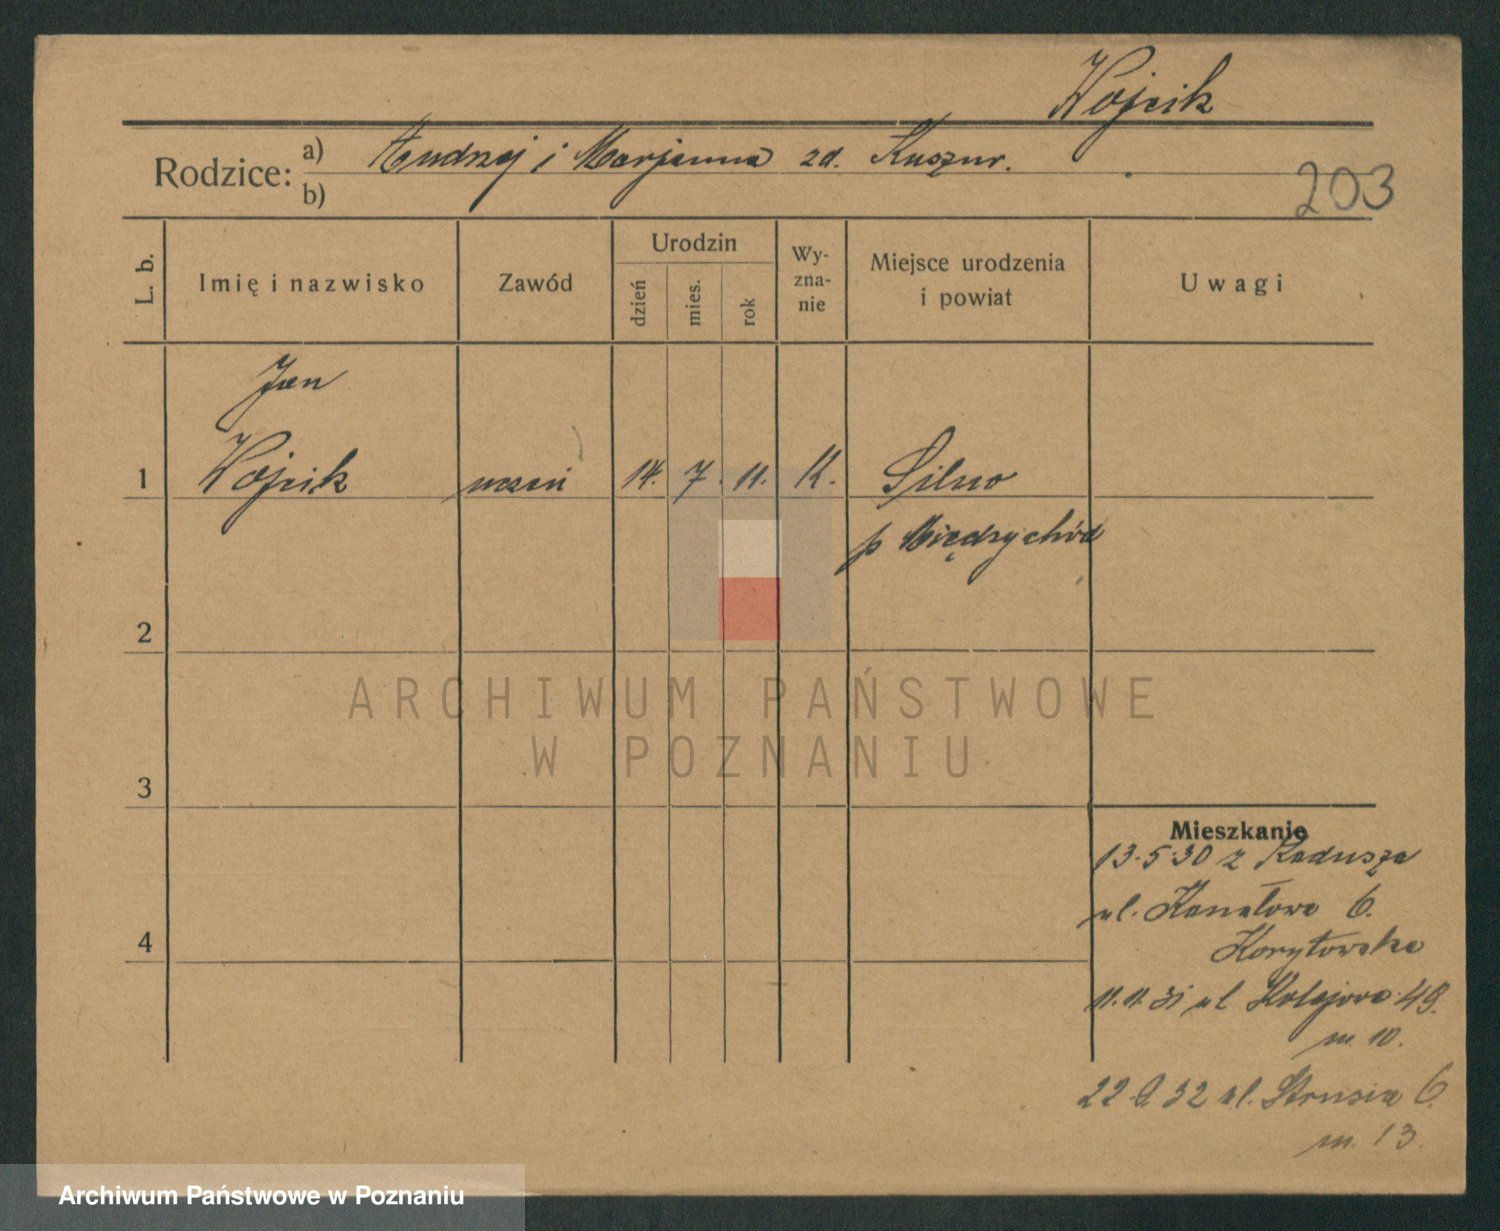 Wojcik
Rodzice: a) Andrzej i Marjanna zd. Kuszur.
b)
203
L. b.
Imię i nazwisko
Zawód
Urodzin
dzień
mies.
rok
Wy-
zna-
nie
Miejsce urodzenia
i powiat
Uwagi
Jan
1 Wojcik uczeń 14. 7. 11. K. Silno
p Międzychód
2
ARCHIWUM PAŃSTWOWE
W POZNANIU
3
Mieszkanie
13.5.30 z Radusza
ul. Kanałowa 6.
4
Koryłowska
11.11.31 ul Kolejowa 49.
m. 10.
22.9.32 ul. Strusia 6.
m. 13.
Archiwum Państwowe w Poznaniu